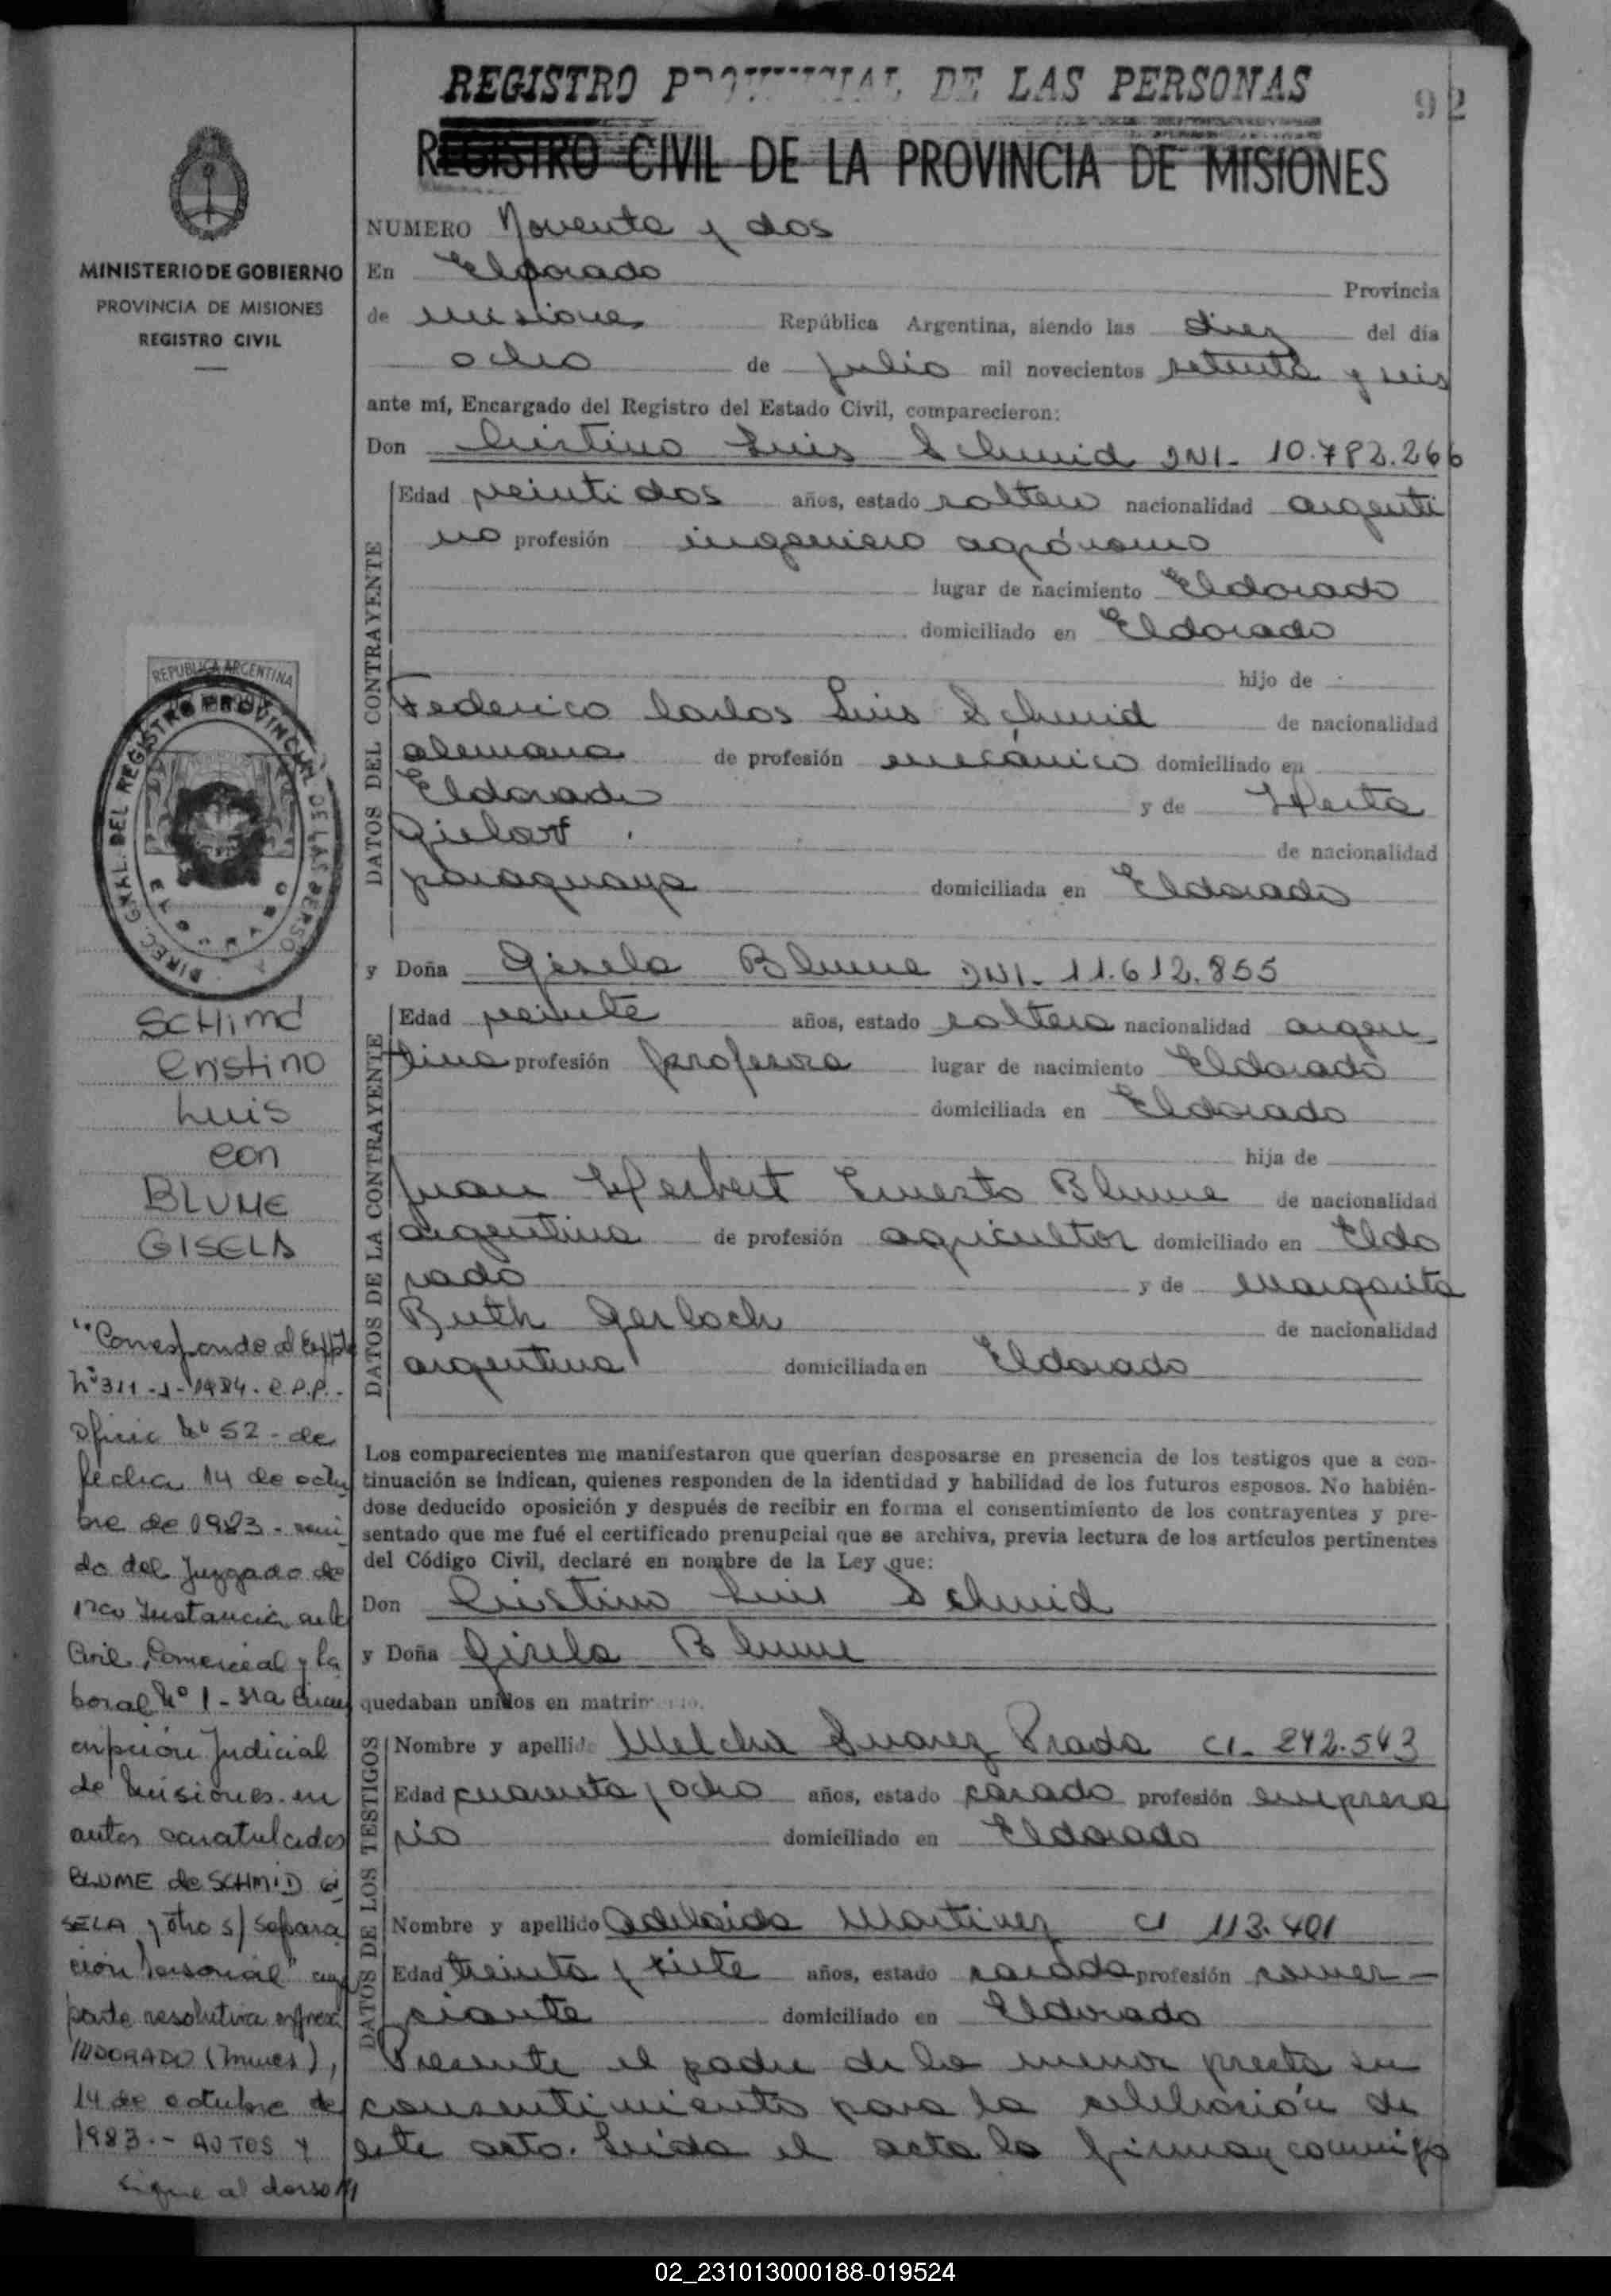 REGISTRO PROVINCIAL DE LAS PERSONAS
92
REGISTRO CIVIL DE LA PROVINCIA DE MISIONES
MINISTERIO DE GOBIERNO
PROVINCIA DE MISIONES
REGISTRO CIVIL
NUMERO Noventa y dos
En Eldorado Provincia
de Misiones República Argentina, siendo las diez del día
ocho de julio mil novecientos setenta y seis
ante mí, Encargado del Registro del Estado Civil, comparecieron:
Don Cristino Luis Schmid DNI- 10.782.266
DATOS DEL CONTRAYENTE
Edad veintidos años, estado soltero nacionalidad argenti
no profesión ingeniero agrónomo
lugar de nacimiento Eldorado
domiciliado en Eldorado
hijo de
Federico Carlos Luis Schmid de nacionalidad
alemana de profesión mecánico domiciliado en
Eldorado y de Herta
de nacionalidad
paraguaya domiciliada en Eldorado
y Doña Gisela Blume DNI- 11.612.855
DATOS DE LA CONTRAYENTE
Edad veinte años, estado soltera nacionalidad argen
tina profesión profesora lugar de nacimiento Eldorado
domiciliada en Eldorado
hija de
Juan Herbert Ernesto Blume de nacionalidad
argentina de profesión agricultor domiciliado en Eldo
rado y de Margarita
Ruth Gerlach de nacionalidad
argentina domiciliada en Eldorado
Los comparecientes me manifestaron que querían desposarse en presencia de los testigos que a con-
tinuación se indican, quienes responden de la identidad y habilidad de los futuros esposos. No habién-
dose deducido oposición y después de recibir en forma el consentimiento de los contrayentes y pre-
sentado que me fué el certificado prenupcial que se archiva, previa lectura de los artículos pertinentes
del Código Civil, declaré en nombre de la Ley que:
Don Cristino Luis Schmid
y Doña Gisela Blume
quedaban unidos en matrimonio.
DATOS DE LOS TESTIGOS
Nombre y apellido Suarez Prada CI- 242.543
Edad cuarenta y ocho años, estado casado profesión empresa
rio domiciliado en Eldorado
Nombre y apellido Adelaida Martinez CI 113.401
Edad treinta y siete años, estado casada profesión comer-
ciante domiciliado en Eldorado
Presente el padre de la menor presta su
consentimiento para la celebración de
este acto. Leida el acta la firman conmigo
REPUBLICA ARGENTINA
DIREC. GRAL. DEL REGISTRO PROVINCIAL DE LAS PERSO
SCHIMD
Cristino
Luis
con
BLUME
GISELA
"Corresponde al Expte
Nº 311-J-1984-R.P.P.-
Oficio Nº 52 - de
fecha 14 de octu
bre de 1983 - remi
do del Juzgado de
1ra Instancia en lo
Civil, Comercial y la
boral Nº 1 - 3ra Circu
cripción Judicial
de Misiones - en
autos caratulados
BLUME de SCHMID GI
SELA y otro s/ Separa
ción Personal" cuya
parte resolutiva expresa
14 de octubre de
1983.- AUTOS Y
sigue al dorso ///
02_231013000188-019524